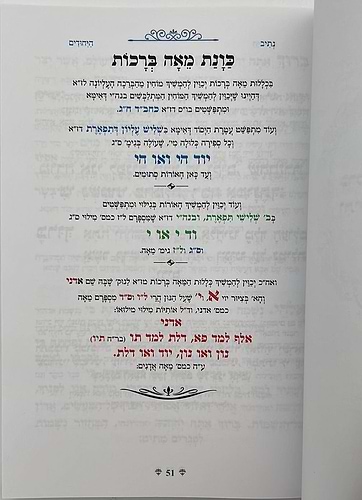 נְתִיב היחודים
כַּוָּנַת מֵאָה בְּרָכוֹת
בִּכְלָלוּת מֵאָה בְּרָכוֹת יְכַוֵּין לְהַמְשִׁיךְ מוֹחִין מֵהַבְּרֵכָה הָעֶלְיוֹנָה לז"א
דְּהַיְינוּ שֶׁיְּכַוֵּין לְהַמְשִׁיךְ הַמּוֹחִין הַמִּתְלַבְּשִׁים בנה"י דְּאִימָּא
וּמִתְפַּשְּׁטִים בו"ס דז"א כחב"ד ח"ג.
וְעוֹד מִתְפַּשֵּׁט עֲטֶרֶת הַיְסוֹד דְּאִימָּא בִּשְׁלִישׁ עֶלְיוֹן דְּתִפְאֶרֶת דז"א
וְכָל סְפִירָה כְּלוּלָה מי', שֶׁעוֹלָה בְּגִימ' ס"ג
יוד הי ואו הי
וְעַד כָּאן הָאוֹרוֹת סְתוּמִים.
וְעוֹד יְכַוֵּין לְהַמְשִׁיךְ הָאוֹרוֹת בְּגִילּוּי וּמִתְפַּשְּׁטִים
בְּב' שְׁלִישֵׁי תִּפְאֶרֶת, וּבנה"י דז"א שֶׁמִּסְפָּרָם ל"ז כמס' מִילּוּי ס"ג
וד י או י
וס"ג ול"ז גימ' מֵאָה.
ואח"כ יְכַוֵּין לְהַמְשִׁיךְ כְּלָלוּת הַמֵּאָה בְּרָכוֹת מז"א לְנוּק' שֶׁבָּהּ שֵׁם אדני
וְהָא' בְּצִיּוּר יוי א, וי' שֶׁעַל הַנּוּן הֲרֵי ל"ז וס"ד מִסְפָּרָם מֵאָה
כמס' אדני, וד"ל אוֹתִיּוֹת מִילּוּי מִילּוּאוֹ:
אדני
אלף למד פא, דלת למד תו (בר"ת תיו)
נון ואו נון, יוד ואו דלת.
ע"ה כמס' מֵאָה אֲדָנִים:
51